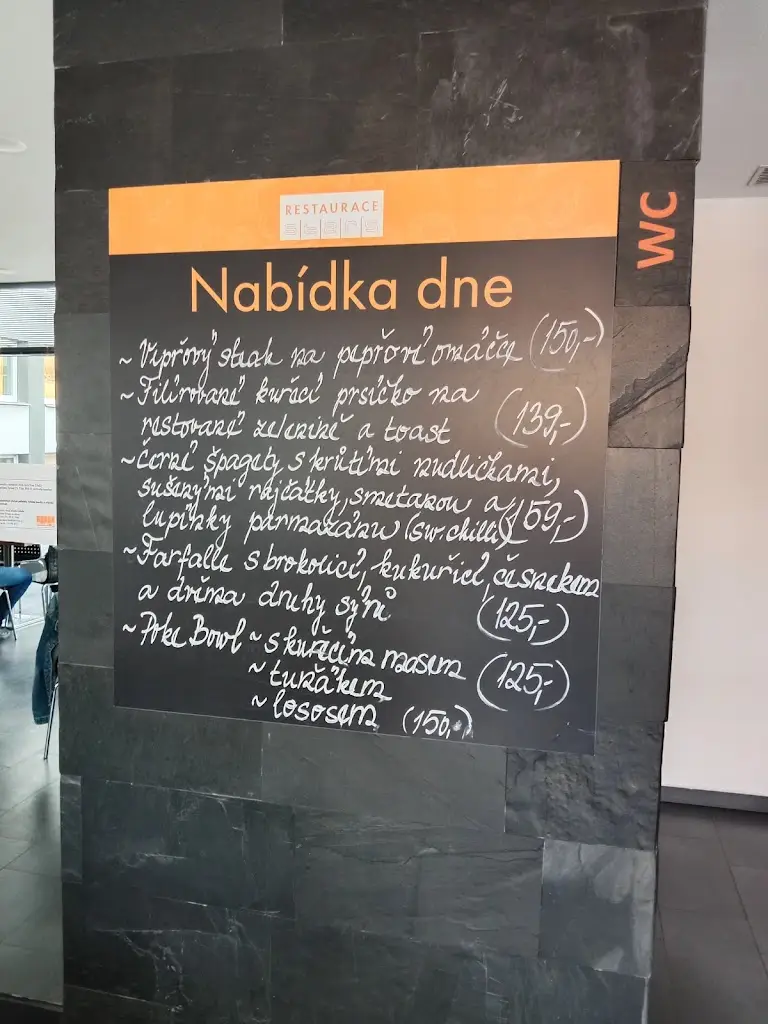 RESTAURACE
WC
Nabídka dne
~ Vepřový steak na pepřové omáčce (150,-)
~ Filírované kuřecí prsíčko na
restované zelenině a toast (139,-)
~ Černé špagety s krůtími nudličkami,
sušenými rajčátky, smetanou a
lupínky parmazánu (sw. chilli) (159,-)
~ Farfalle s brokolicí, kukuřicí, česnekem
a dvěma druhy sýrů (125,-)
~ Poke Bowl ~ s kuřecím masem
~ tuňákem (125,-)
~ lososem (150,-)